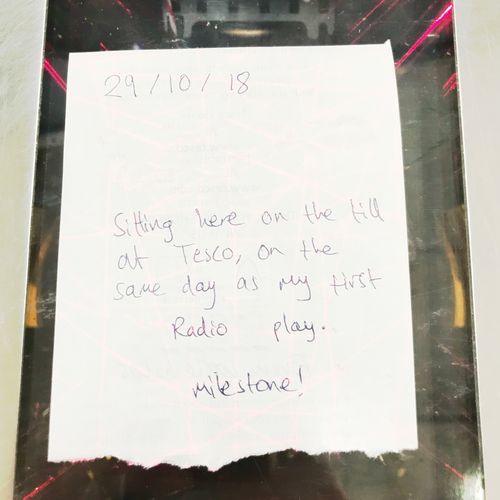 29/10/18
Sitting here on the till
at Tesco, on the
same day as my first
Radio play.
milestone!